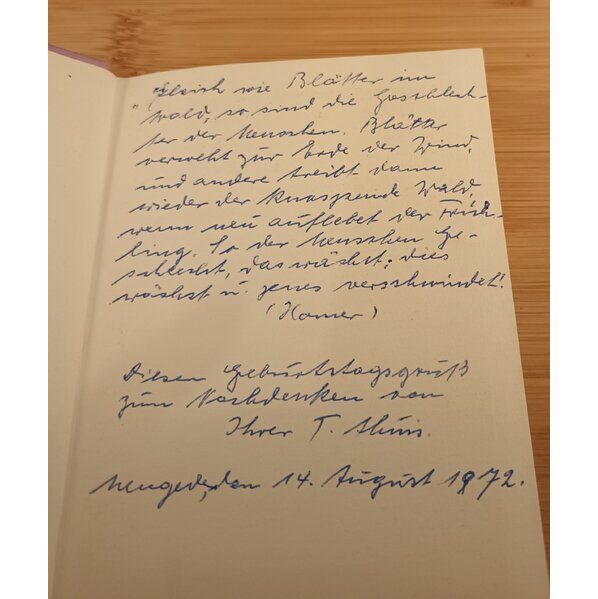 "Gleich wie Blätter im
Wald, so sind die Geschlech-
ter der Menschen. Blätter
verweht zur Erde der Wind,
und andere treibt dann
wieder der knospende Wald,
wenn neu auflebet der Früh-
ling. So der Menschen Ge-
schlecht, das wächst; dies
wächst u. jenes verschwindet!
(Homer)
Diesen Geburtstagsgruß
zum Nachdenken von
Ihrer T.
Mengede, den 14. August 1972.